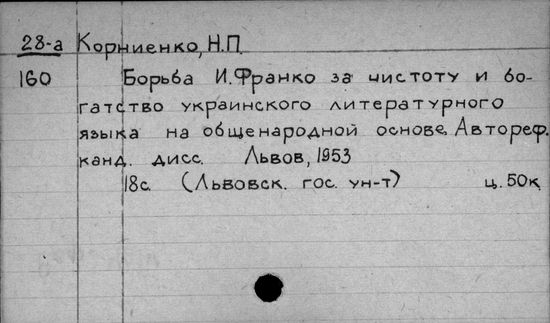 28-а Корниенко, Н.П.
160 Борьба И.Франко за чистоту и бо-
гатство украинского литературного
языка на общенародной основе. Автореф.
канд. дисс. Львов, 1953
18с. (Львовск. гос. ун-т) ц. 50к.